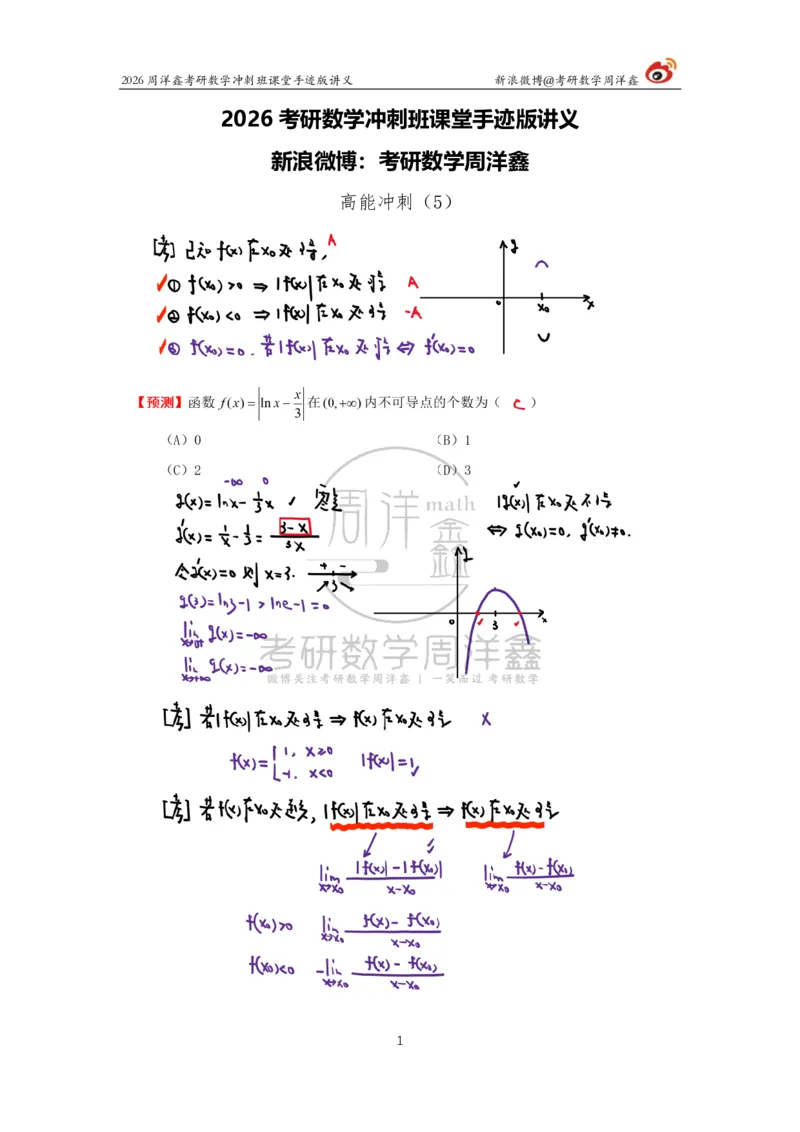 2026周洋鑫考研数学冲刺班课堂手迹版讲义 新浪微博@考研数学周洋鑫
2026考研数学冲刺班课堂手迹版讲义
新浪微博：考研数学周洋鑫
高能冲刺（5）
[考] 已知 f(x) 在x₀处可导, A
✓① f(x₀)>0 ⇒ |f(x)|在x₀处可导 A
✓② f(x₀)<0 ⇒ |f(x)|在x₀处可导 -A
✓③ f(x₀)=0. 若|f(x)|在x₀处可导 ⇔ f'(x₀)=0
y
0 x₀ x
【预测】函数 f(x)=|ln x − x/3| 在(0,+∞)内不可导点的个数为（ C ）
（A）0 （B）1
（C）2 （D）3
-∞ 0
g(x)=lnx-1/3x ✓
g'(x)=1/x-1/3=(3-x)/3x
令g'(x)=0 则 x=3. + - 3
g(3)=ln3-1>lne-1=0
lim x→0+ g(x)=-∞
lim x→+∞ g(x)=-∞
|g(x)|在x₀处不可导
⇔ g(x₀)=0, g'(x₀)≠0.
y
0 3 x
周洋鑫 math
考研数学周洋鑫
微博关注考研数学周洋鑫 | 一笑而过 考研数学
[考] 若|f(x)|在x₀处可导 ⇒ f(x)在x₀处可导 ×
f(x)={1, x≥0 -1, x<0 |f(x)|=1 ✓
[考] 若f(x)在x₀处连续, |f(x)|在x₀处可导 ⇒ f(x)在x₀处可导
lim x→x₀ (|f(x)|-|f(x₀)|)/(x-x₀) lim x→x₀ (f(x)-f(x₀))/(x-x₀)
f(x₀)>0 lim x→x₀ (f(x)-f(x₀))/(x-x₀)
f(x₀)<0 -lim x→x₀ (f(x)-f(x₀))/(x-x₀)
1